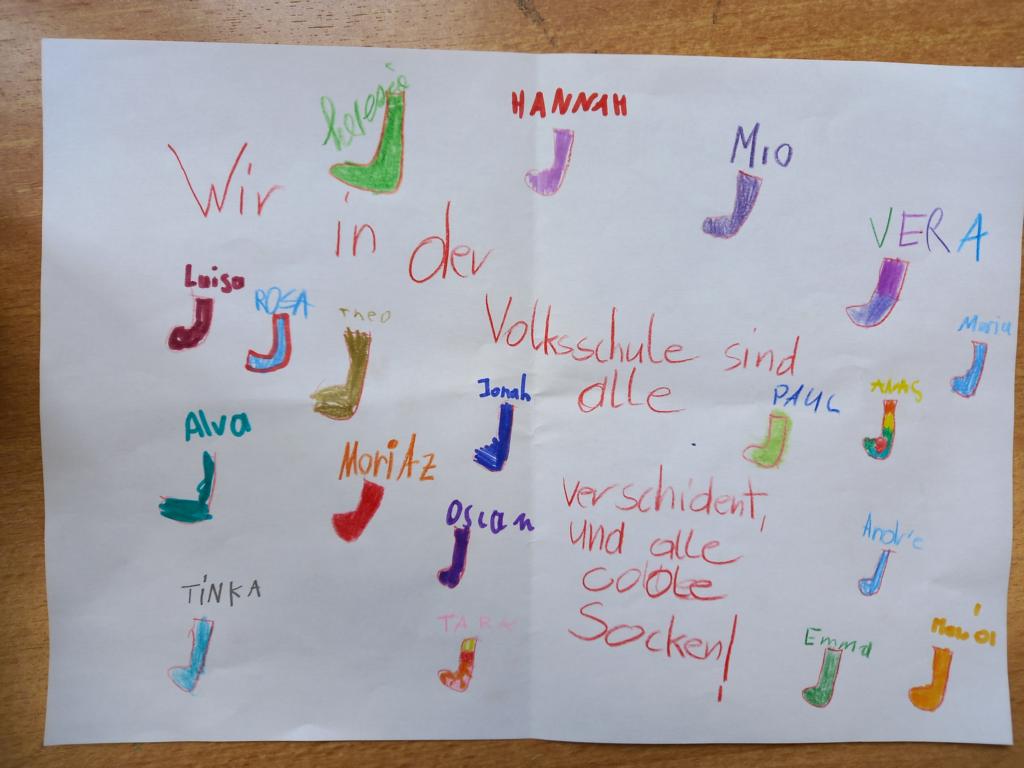 HANNAH
MIO
Wir
in der
VERA
Luisa
ROSA
Theo
Volksschule sind
alle
Maria
Jonah
PAUL
ANAS
Alva
MoriAz
verschident,
Oscan
und alle
Andr'e
coole
TiNKA
TARA
Socken!
Emma